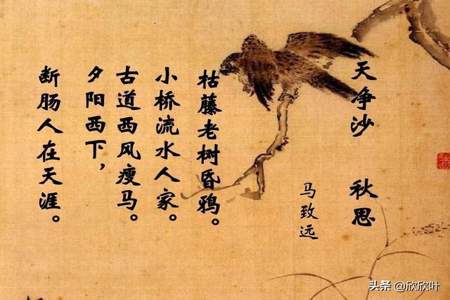 天净沙 秋思
马致远
枯藤老树昏鸦。
小桥流水人家。
古道西风瘦马。
夕阳西下，
断肠人在天涯。
头条@欣欣叶